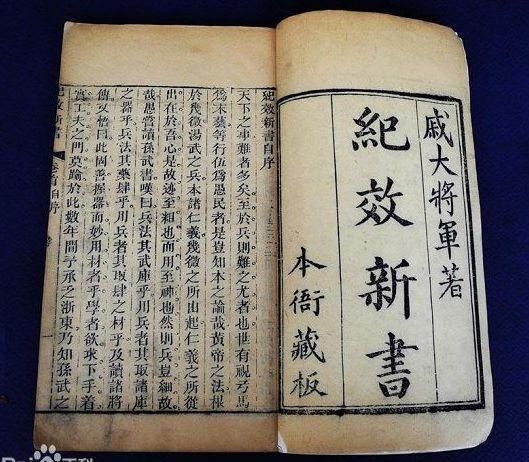 戚大將軍著
紀效新書
本衙藏板
紀效新書自序
天下之事難者多矣至於兵則難之尤者也世有視弓馬
爲末藝等行伍爲愚民者是豈知本之論哉黃帝之法根
於幾微湯武之兵本諸仁義幾微之所由起仁義之所從
出在於吾心是故迹至粗也而用至神也然則兵豈細故
哉愚嘗讀孫武書嘆曰兵法其武庫乎用兵者其取諸庫
之器乎兵法其藥肆乎用兵者其取肆之材乎及讀諸將
傳又悟曰此固善握器而妙用材者乎學者欲求下手着
實工夫之門莫踰於此數年間予承乏浙東乃知孫武之
紀效新書 自序 一